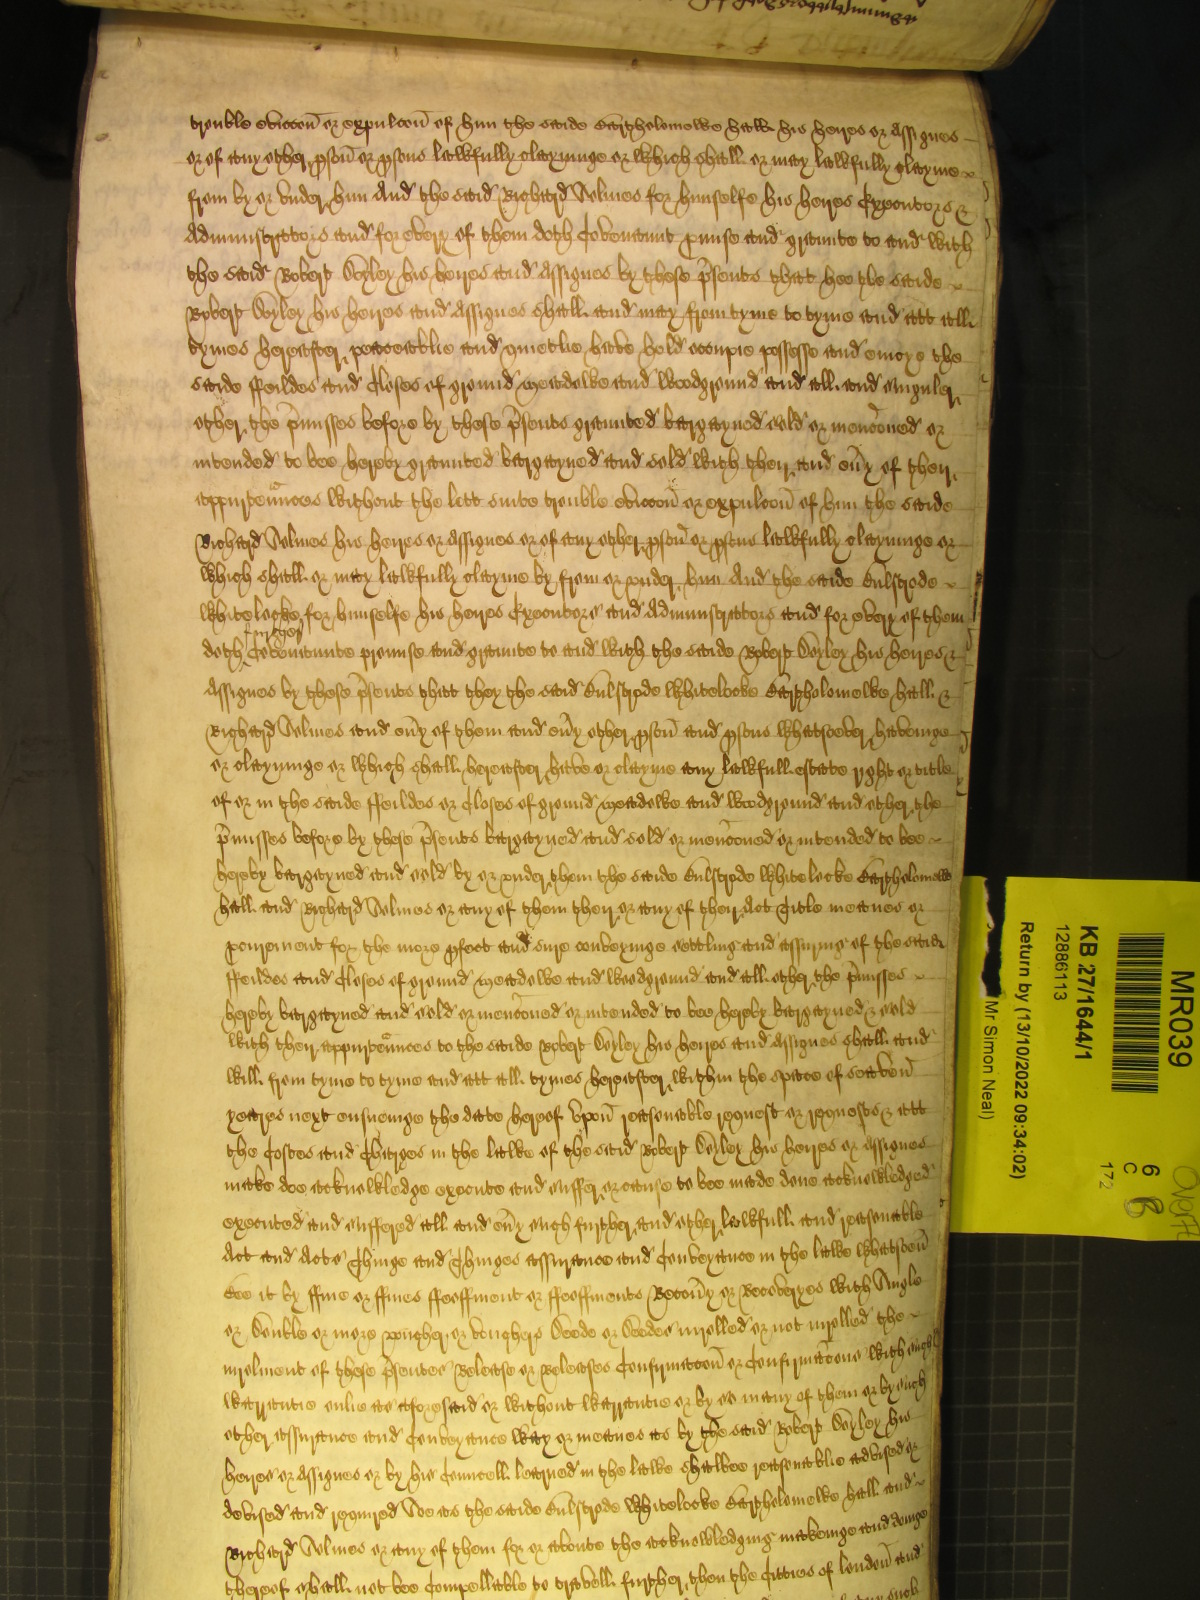 trouble eviccon or expulcon of him the saide Bartholomewe Hall his heires or Assignes
or of any other pson or psons lawfully clayminge or which shall or may lawfully clayme
from by or vnder him And the said Richard Holmes for himselfe his heires Executors &
Administrators and for every of them doth Covenaunt pmise and graunte to and with
the said Robert Doyley his heires and Assignes by these psents that hee the saide
Robert Doyley his heires and Assignes shall and may from tyme to tyme and att all
tymes hereafter peaceablie and quietlie have hold occupie possesse and enioye the
saide ffeildes and Closes of ground meadowe and woodground and all and singuler
other the pmisses before by these psents graunted bargayned sold or menconed or
intended to bee hereby graunted bargayned and sold with their and euy of their
appurtennces without the lett suite trouble eviccon or expulcon of him the saide
Richard Holmes his heires or Assignes or of any other pson or psons lawfully clayminge or
which shall or may lawfully clayme by from or vnder him And the saide Bulstrode
Whitelocke for himselfe his heires Executors and Administrators and for every of them
doth Covenaunte promise and graunte to and with the saide Robert Doyley his heires &
Assignes by these psents that they the said Bulstrode Whitelocke Bartholomewe Hall &
Richard Holmes and euy of them and euy other pson and psons whatsoever haveinge
or clayminge or which shall hereafter have or clayme any lawfull estate right or title
of or in the saide ffeildes or Closes of ground meadowe and woodground and other the
pmisses before by these psents bargayned and sold or menconed or intended to bee
hereby bargayned and sold by or vnder them the saide Bulstrode Whitelocke Bartholomewe
Hall and Richard Holmes or any of them their or any of their Act Title meanes or
pcurement for the more pfect and sure conveyinge setling and assuring of the saide
ffeildes and Closes of ground meadowe and woodground and all other the pmisses
hereby bargayned and sold or menconed or intended to bee hereby bargayned & sold
with their appurtennces to the saide Robert Doyley his heires and Assignes shall and
will from tyme to tyme and att all tymes hereafter within the space of seaven
yeares next ensueinge the date hereof vpon reasonable request or requests & att
the Costes and Charges in the lawe of the said Robert Doyley his heires or Assignes
make doe acknowledge execute and suffer or cause to bee made done acknowledged
executed and suffered all and euy such further and other lawfull and reasonable
Act and Acts Thinge and Thinges assurance and Conveyance in the lawe whatsoeu
Bee it by ffine or ffines ffeoffment or ffeoffments Recouy or Recoveryes with Single
or Double or more voucher or vouchers Deede or Deedes inrolled or not inrolled the
inrolment of these psentes Release or Releases Confirmacon or Confirmacons with such
warrantie onlie as aforesaid or without warrantie or by so many of them or by such
other assurance and Conveyance way or meanes as by the said Robert Doyley his
heires or Assignes or by his Councell learned in the lawe shalbee reasonablie advised or
devised and required Soe as the saide Bulstrode Whitelocke Bartholomewe Hall and
Richard Holmes or any of them for or aboute the acknowledging makeinge and doinge
thereof shall not bee Compellable to travell further then the Citties of London and
MR039
KB 27/1644/1
12886113
Return by (13/10/2022 09:34:02)
Mr Simon Neal)
6
C
172
6